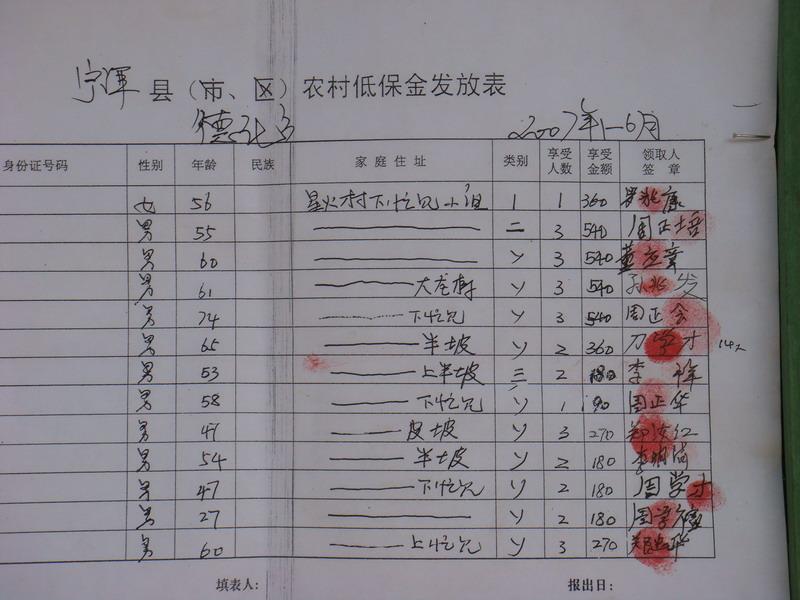 宁洱县（市、区）农村低保金发放表
德化乡 2007年1-6月
身份证号码 性别 年龄 民族 家庭住址 类别 享受人数 享受金额 领取人签章
女 56 星火村下忙兄小组 1 1 360
男 55 二 3 540 周正培
男 60 〃 3 540
男 61 大龙树 〃 3 540 孙兆发
男 74 下忙兄 〃 3 540 周正会
男 65 半坡 〃 2 360 刀学才
男 53 上半坡 三 2 180 李
男 58 下忙兄 〃 1 90 周正华
男 47 皮坡 〃 3 270
男 54 半坡 〃 2 180
男 47 下忙兄 〃 2 180 周学才
男 27 〃 2 180 周学
男 60 上忙兄 〃 3 270
填表人： 报出日：